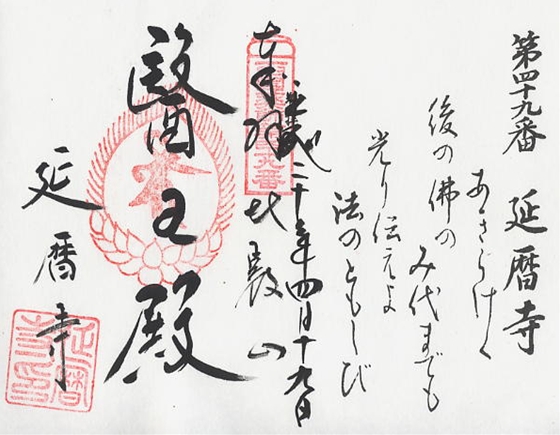 第四十九番 延暦寺
あきらけく
後の佛の
み代までも
光り伝えよ
法のともしび
平成二十年四月十九日
奉拝 比叡山
醫王殿
延暦寺
延暦寺印